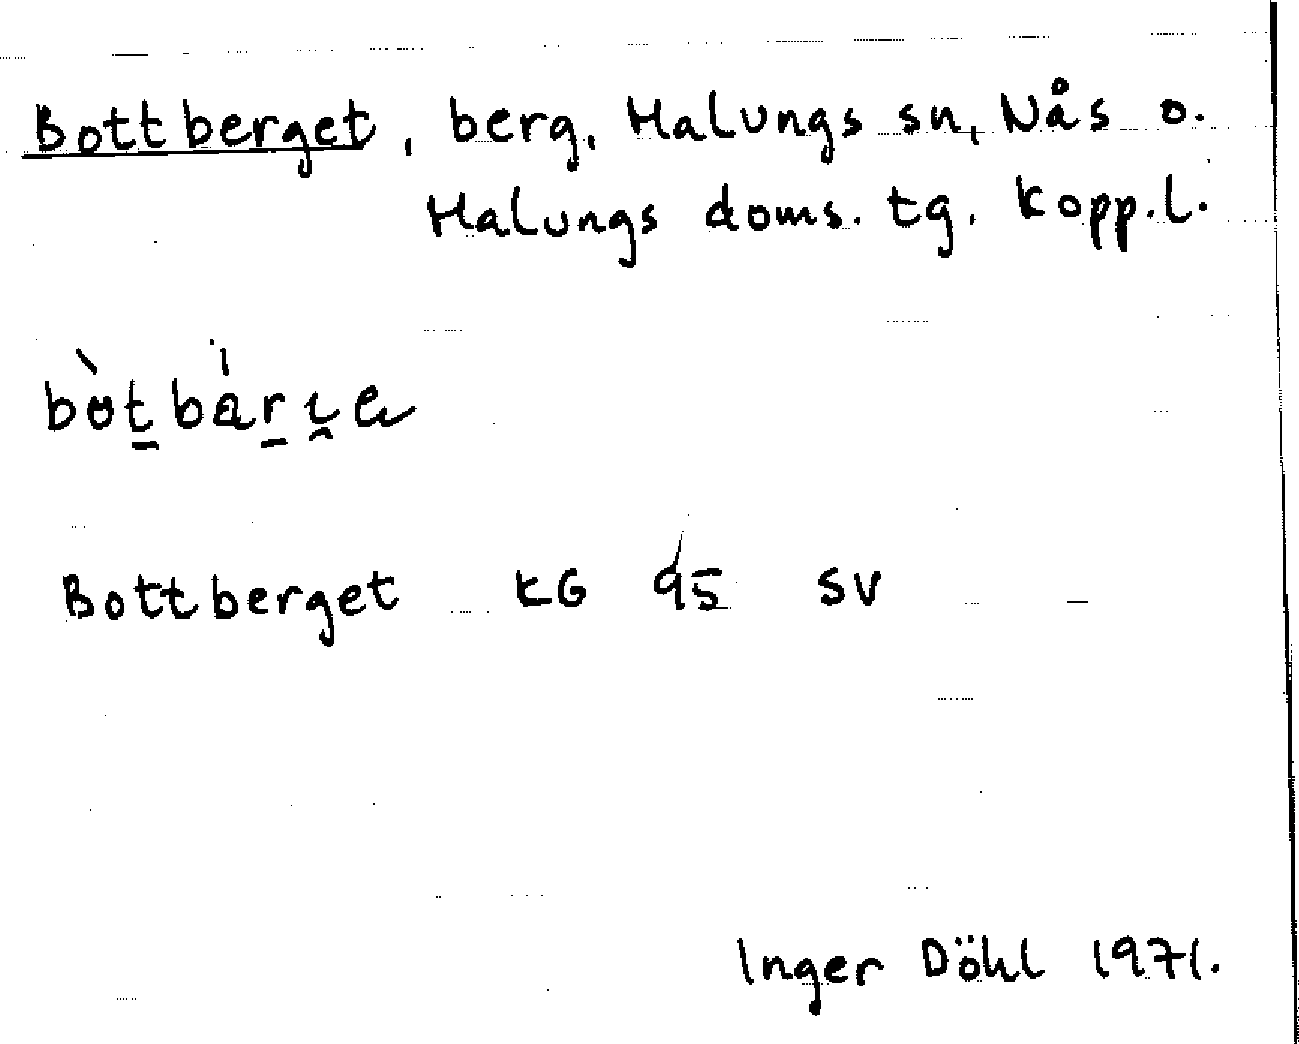 Bottberget, berg, Malungs sn, Nås o.
Malungs doms. tg. Kopp.l.
Bottberget KG 95 SV
Inger Döhl 1971.